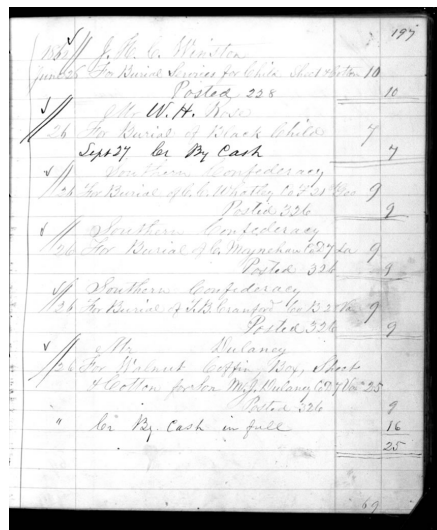 197
1862 J. H. C. Winston
June 26 For Burial Service for Child Short & Cotton 10
Posted 228 10
Mr W. H. Rose
26 For Burial of Black Child 7
Sept 27 Cr By Cash 7
Southern Confederacy
26 For Burial of C. C. Whatley Co F 9
Posted 326 9
Southern Confederacy
26 For Burial of C Co D 7 9
Posted 326 9
Southern Confederacy
26 For Burial of Cranford Co B 9
Posted 326 9
Mr Dulaney
26 For Walnut Coffin, Box, Sheet
& Cotton for Son M. J. Dulany Co D 7 25
Posted 326 9
" Cr By Cash in full 16
25
69